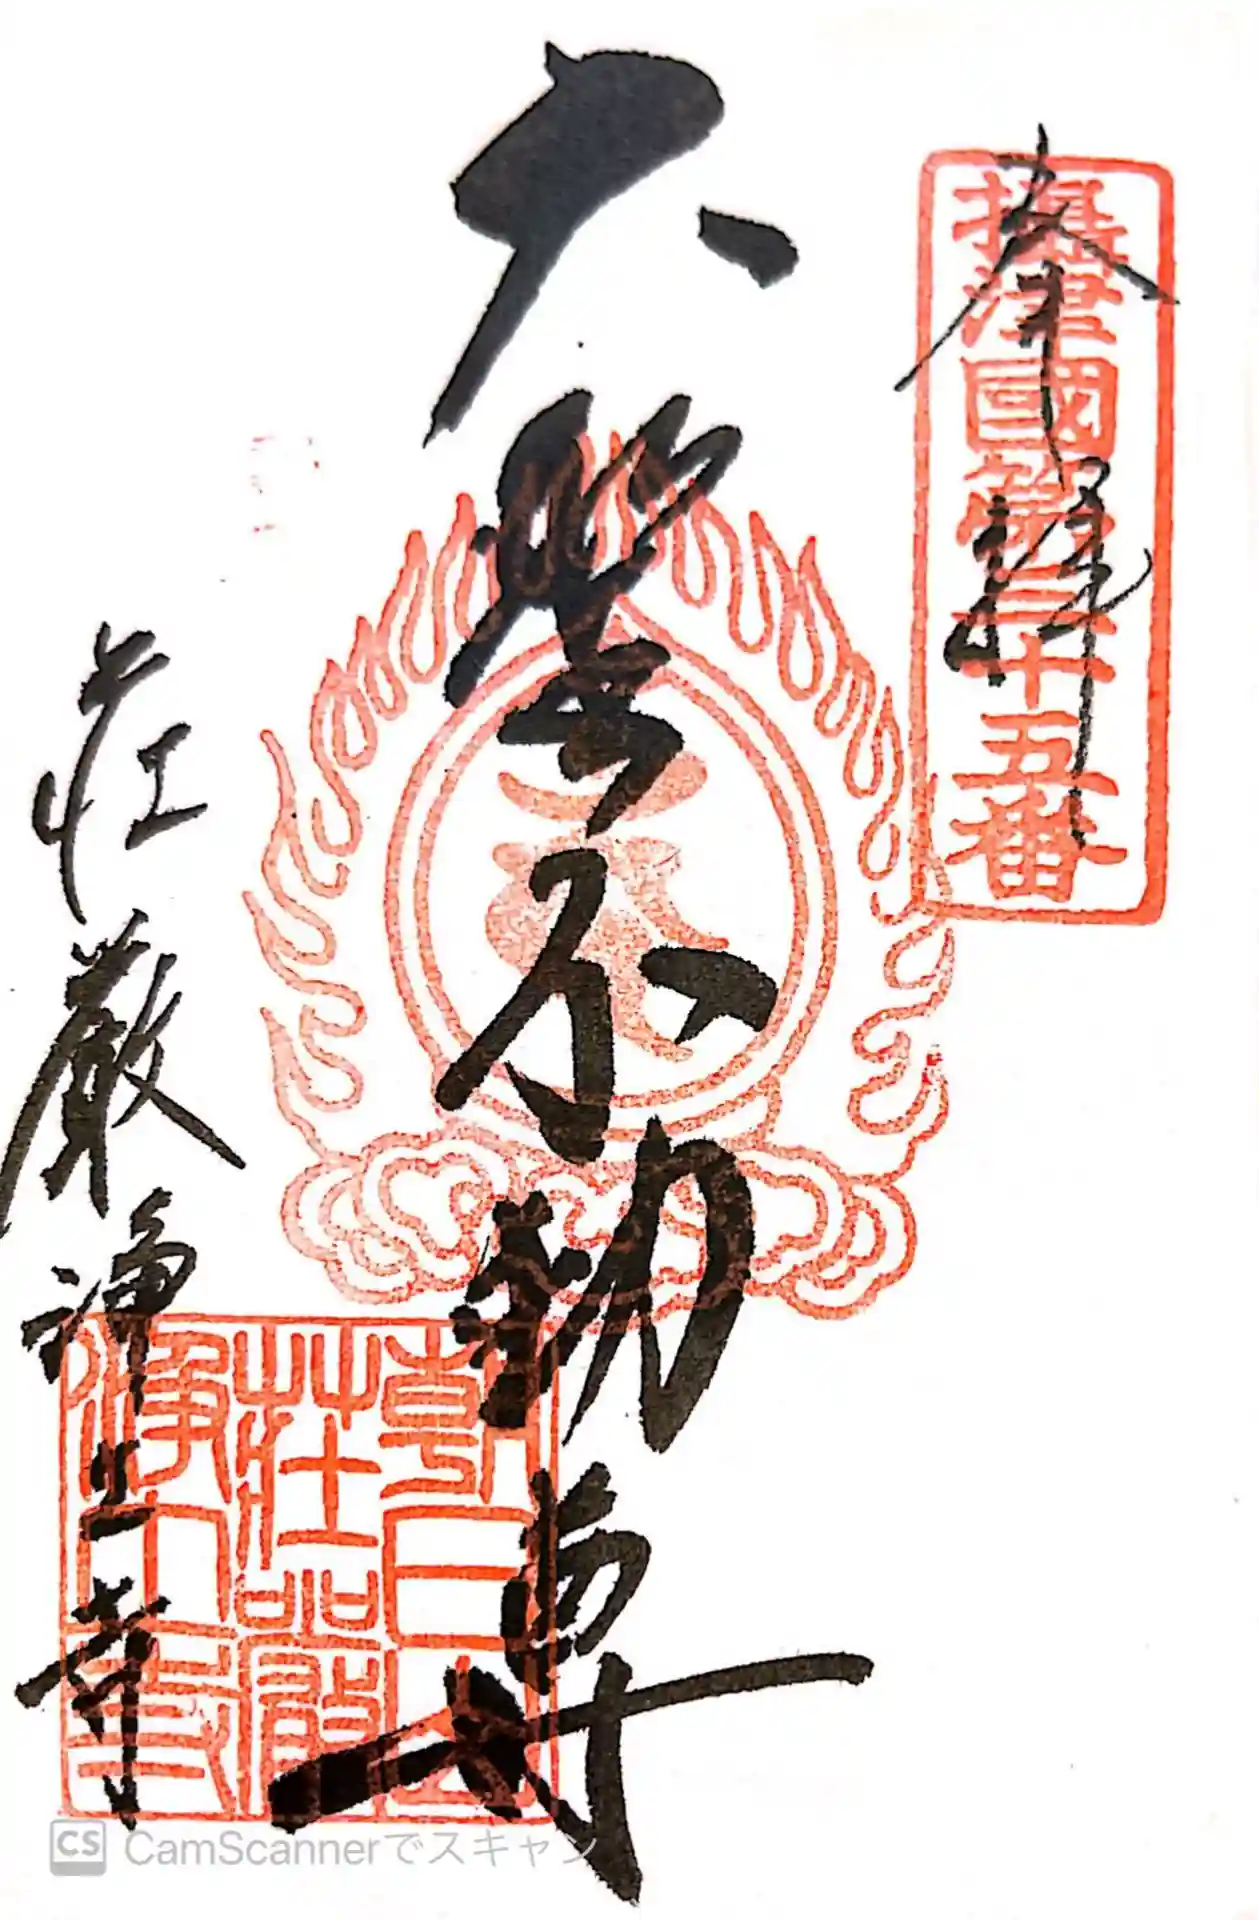 奉拝
摂津國第三十五番
大聖不動尊
荘厳浄土寺
朝日山
荘嚴
淨土寺
CS CamScannerでスキャン